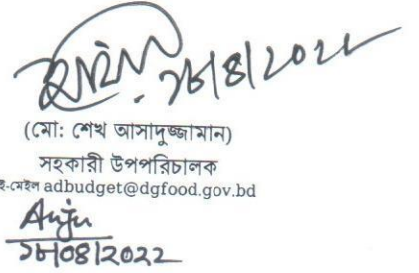 ১৮/৪/২০২২
(মো: শেখ আসাদুজ্জামান)
সহকারী উপপরিচালক
ই-মেইল adbudget@dgfood.gov.bd
Anju
১৮/০৮/২০২২